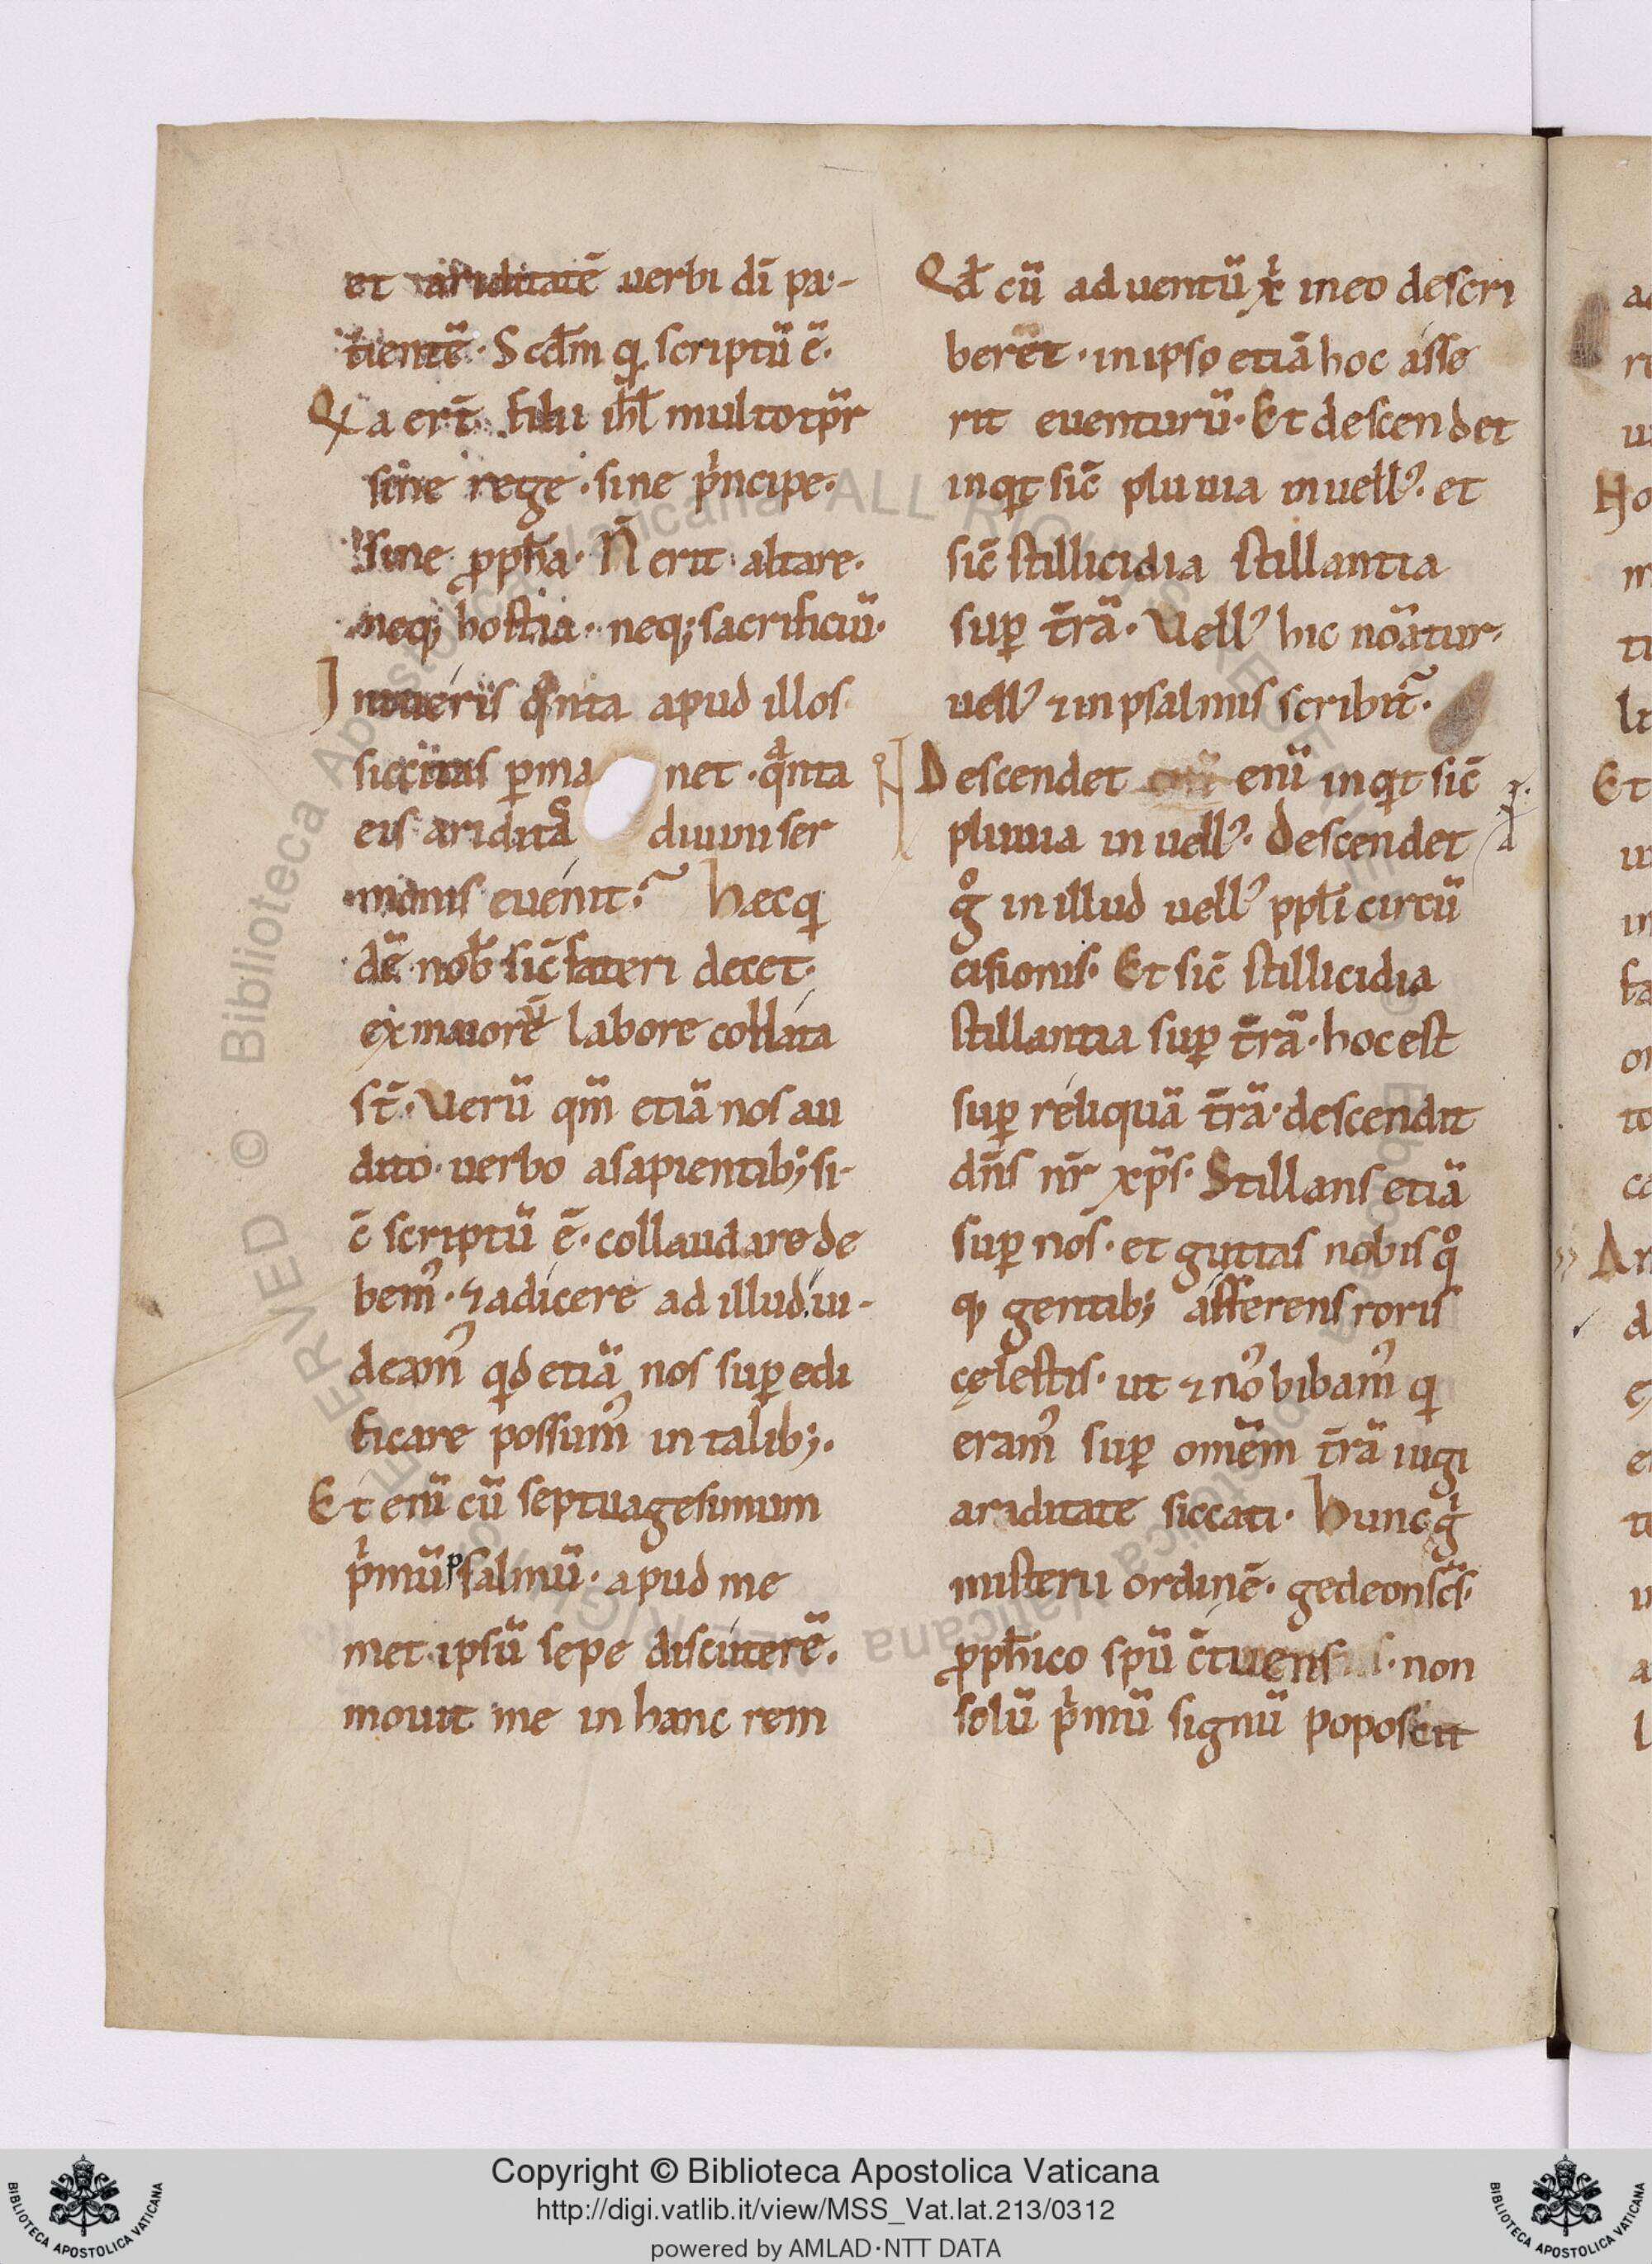 et ariditatē uerbi dī pa-
tientē. Scdm̄ q scriptū ē.
Qa ert̄ filii ihl̄ multo tp̄r
sine rege. sine pͥncipe.
sine ꝓph̄a. N̄ erit altare.
neq; hostia. neq; sacrificiū.
Inueniis qͣnta apud illos
siccitas ꝑma net. qͣnta
eis ariditaͦ diuini ser
monis euenit. Hec q
dē nob̄ sic̄ fateri decet.
ex maiorē labore collata
st̄. Uerū qm̄ etiā nos au
dito uerbo a sapientib; si-
c̄ scriptū ē. collaudare de
bemꝰ. ⁊ adicere ad illud. ui-
deamꝰ qd etiā nos suꝑ edi
ficare possumꝰ in talib;.
Et enī cū septuagesimum
pͥmū psalmū. apud me
met ipsū sepe discuterē.
mouit me in hanc rem
Qd̄ cū aduentū xͥ in eo descri
beret. in ipso etiā hoc asse
rit euenturū. Et descendet
inqt sic̄ pluuia in uellꝰ. et
sic̄ stillicidia stillantia
suꝑ t̄rā. Uellꝰ hic noātur.
uellꝰ ⁊ in psalmis scribit̄.
Descendet enī inqt sic̄
pluuia in uellꝰ. descendet
gͦ in illud uellꝰ ppl̄i circū
cisionis. Et sic̄ stillicidia
stillantia suꝑ t̄rā. hoc est
suꝑ reliquā t̄rā. descendit
dn̄s nr̄ xp̄s. Stillans etiā
suꝑ nos. et guttas nobis qͦ
q gentib; afferens roris
cęlestis. ut ⁊ noꝰ bibamꝰ q
eramꝰ suꝑ omēm t̄rā iugi
araditate siccati. Hunc gͥ
misterii ordinē. gedeon sc̄s.
ꝓph̄ico spū c̄tuens. non
solū pͥmū signū poposcit
Copyright © Biblioteca Apostolica Vaticana
http://digi.vatlib.it/view/MSS_Vat.lat.213/0312
powered by AMLAD·NTT DATA